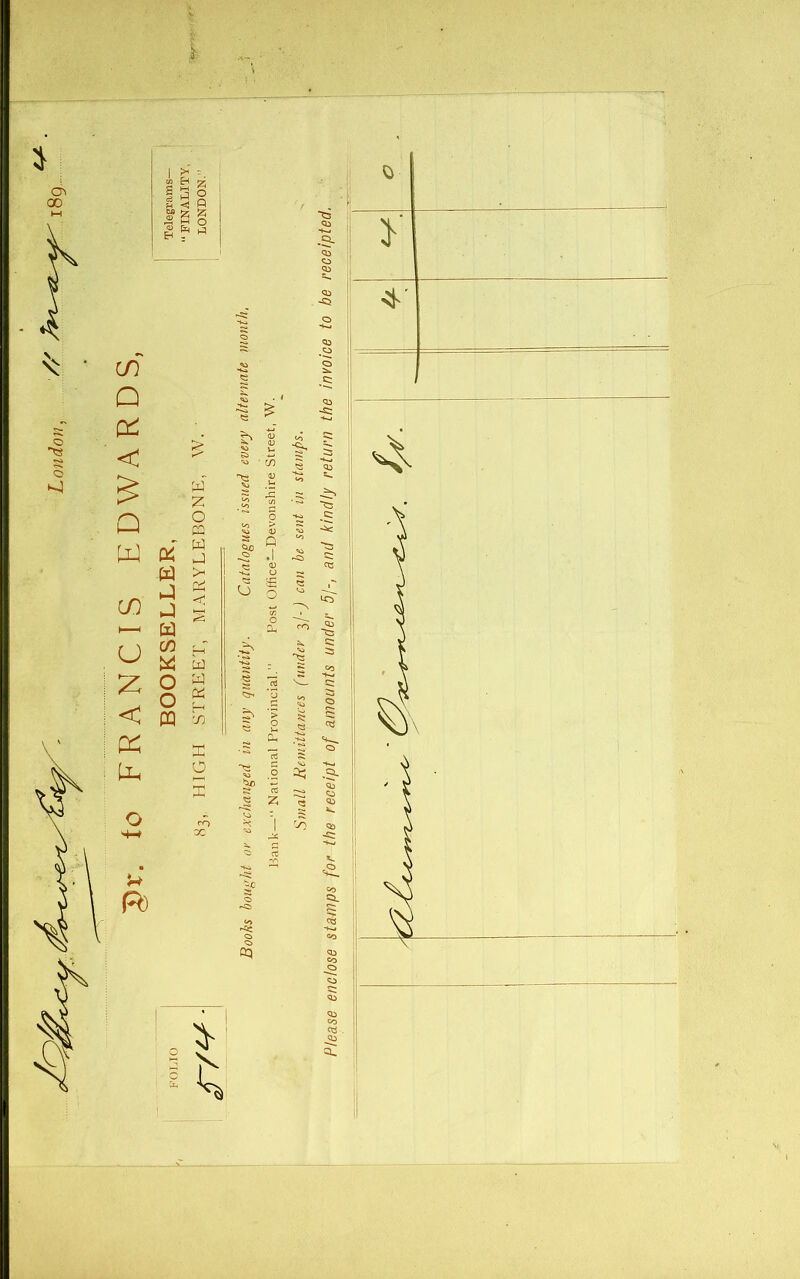 London, 11 May 1894.
D'Arcy Power Esq.
Dr. to FRANCIS EDWARDS,
BOOKSELLER,
83, HIGH STREET, MARYLEBONE, W.
Telegrams—
"FINALITY,
LONDON."
FOLIO
514.
Books bought or exchanged in any quantity. Catalogues issued every alternate month.
Bank—"National Provincial." Post Office—Devonshire Street, W.
Small Remittances (under 3/-) can be sent in stamps.
Please enclose stamps for the receipt of amounts under 5/-, and kindly return the invoice to be receipted.
Alumini Oxoniencis. 4. 4. 0.